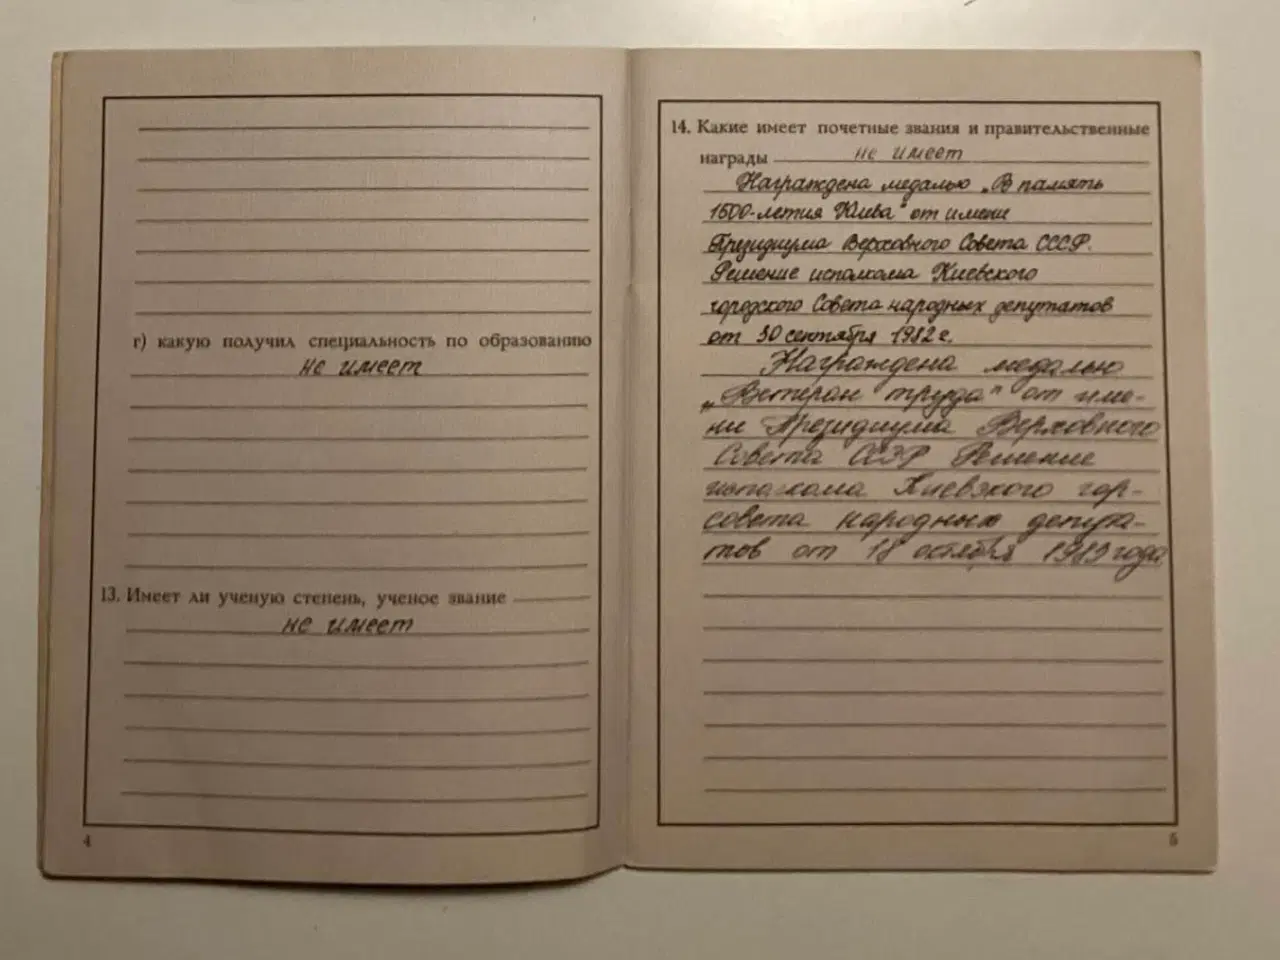 г) какую получил специальность по образованию
не имеет
13. Имеет ли ученую степень, ученое звание
не имеет
4
14. Какие имеет почетные звания и правительственные
награды не имеет
Награждена медалью „В память
1500-летия Киева" от имени
Президиума Верховного Совета СССР.
Решение исполкома Киевского
городского Совета народных депутатов
от 30 сентября 1982 г.
Награждена медалью
„Ветеран труда" от име-
ни Президиума Верховного
Совета СССР Решение
исполкома Киевского гор-
совета народных депута-
тов от 18 октября 1989 года
5